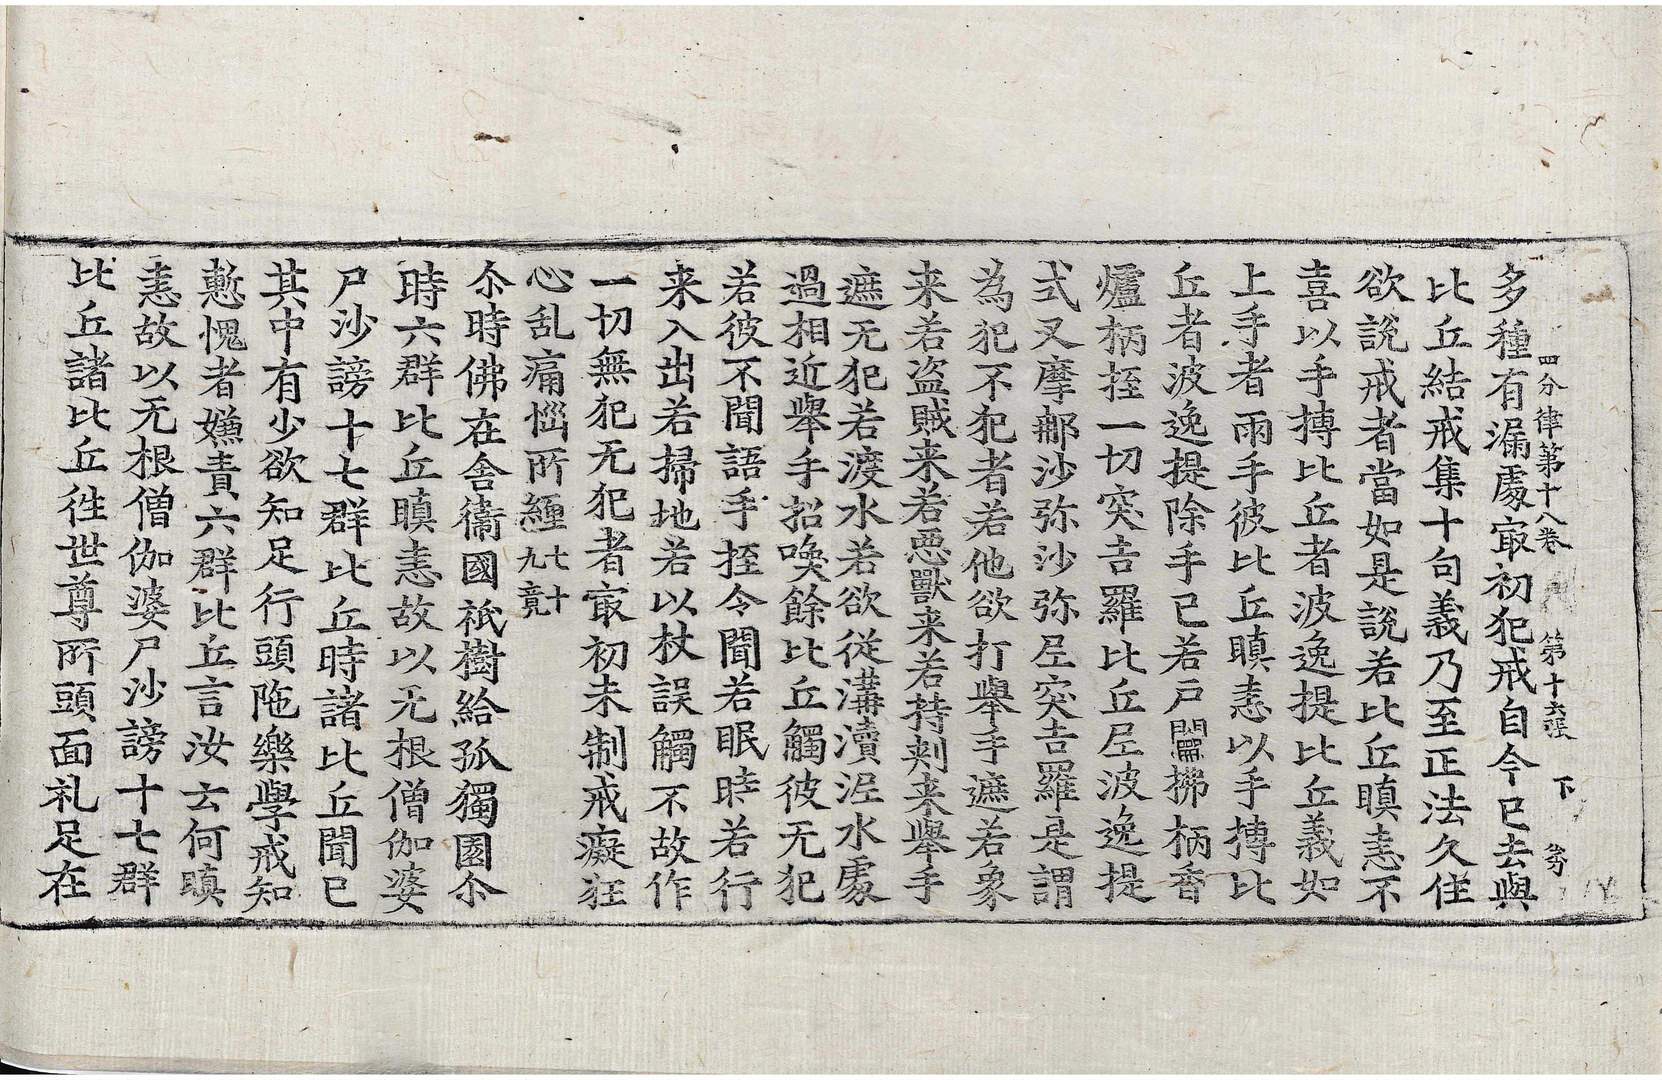 四分律第十八卷 第十六張 下
多種有漏處冣初犯戒自今已去與
比丘結戒集十句義乃至正法久住
欲說戒者當如是說若比丘瞋恚不
喜以手搏比丘者波逸提比丘義如
上手者兩手彼比丘瞋恚以手搏比
丘者波逸提除手已若戶𨷲拂柄香
爐柄挃一切突吉羅比丘尼波逸提
式叉摩那沙弥沙弥尼突吉羅是謂
為犯不犯者若他欲打舉手遮若象
来若盜賊来若惡獸来若持刾来舉手
遮无犯若渡水若欲從溝瀆泥水處
過相近舉手招喚餘比丘觸彼无犯
若彼不聞語手挃令聞若眠時若行
来入出若掃地若以杖誤觸不故作
一切無犯无犯者冣初未制戒癡狂
心乱痛惱所纏七十九竟
尒時佛在舍衛國祇樹給孤獨園尒
時六群比丘瞋恚故以无根僧伽婆
尸沙謗十七群比丘時諸比丘聞已
其中有少欲知足行頭陁樂學戒知
慙愧者嫌責六群比丘言汝云何瞋
恚故以无根僧伽婆尸沙謗十七群
比丘諸比丘徃世尊所頭面礼足在